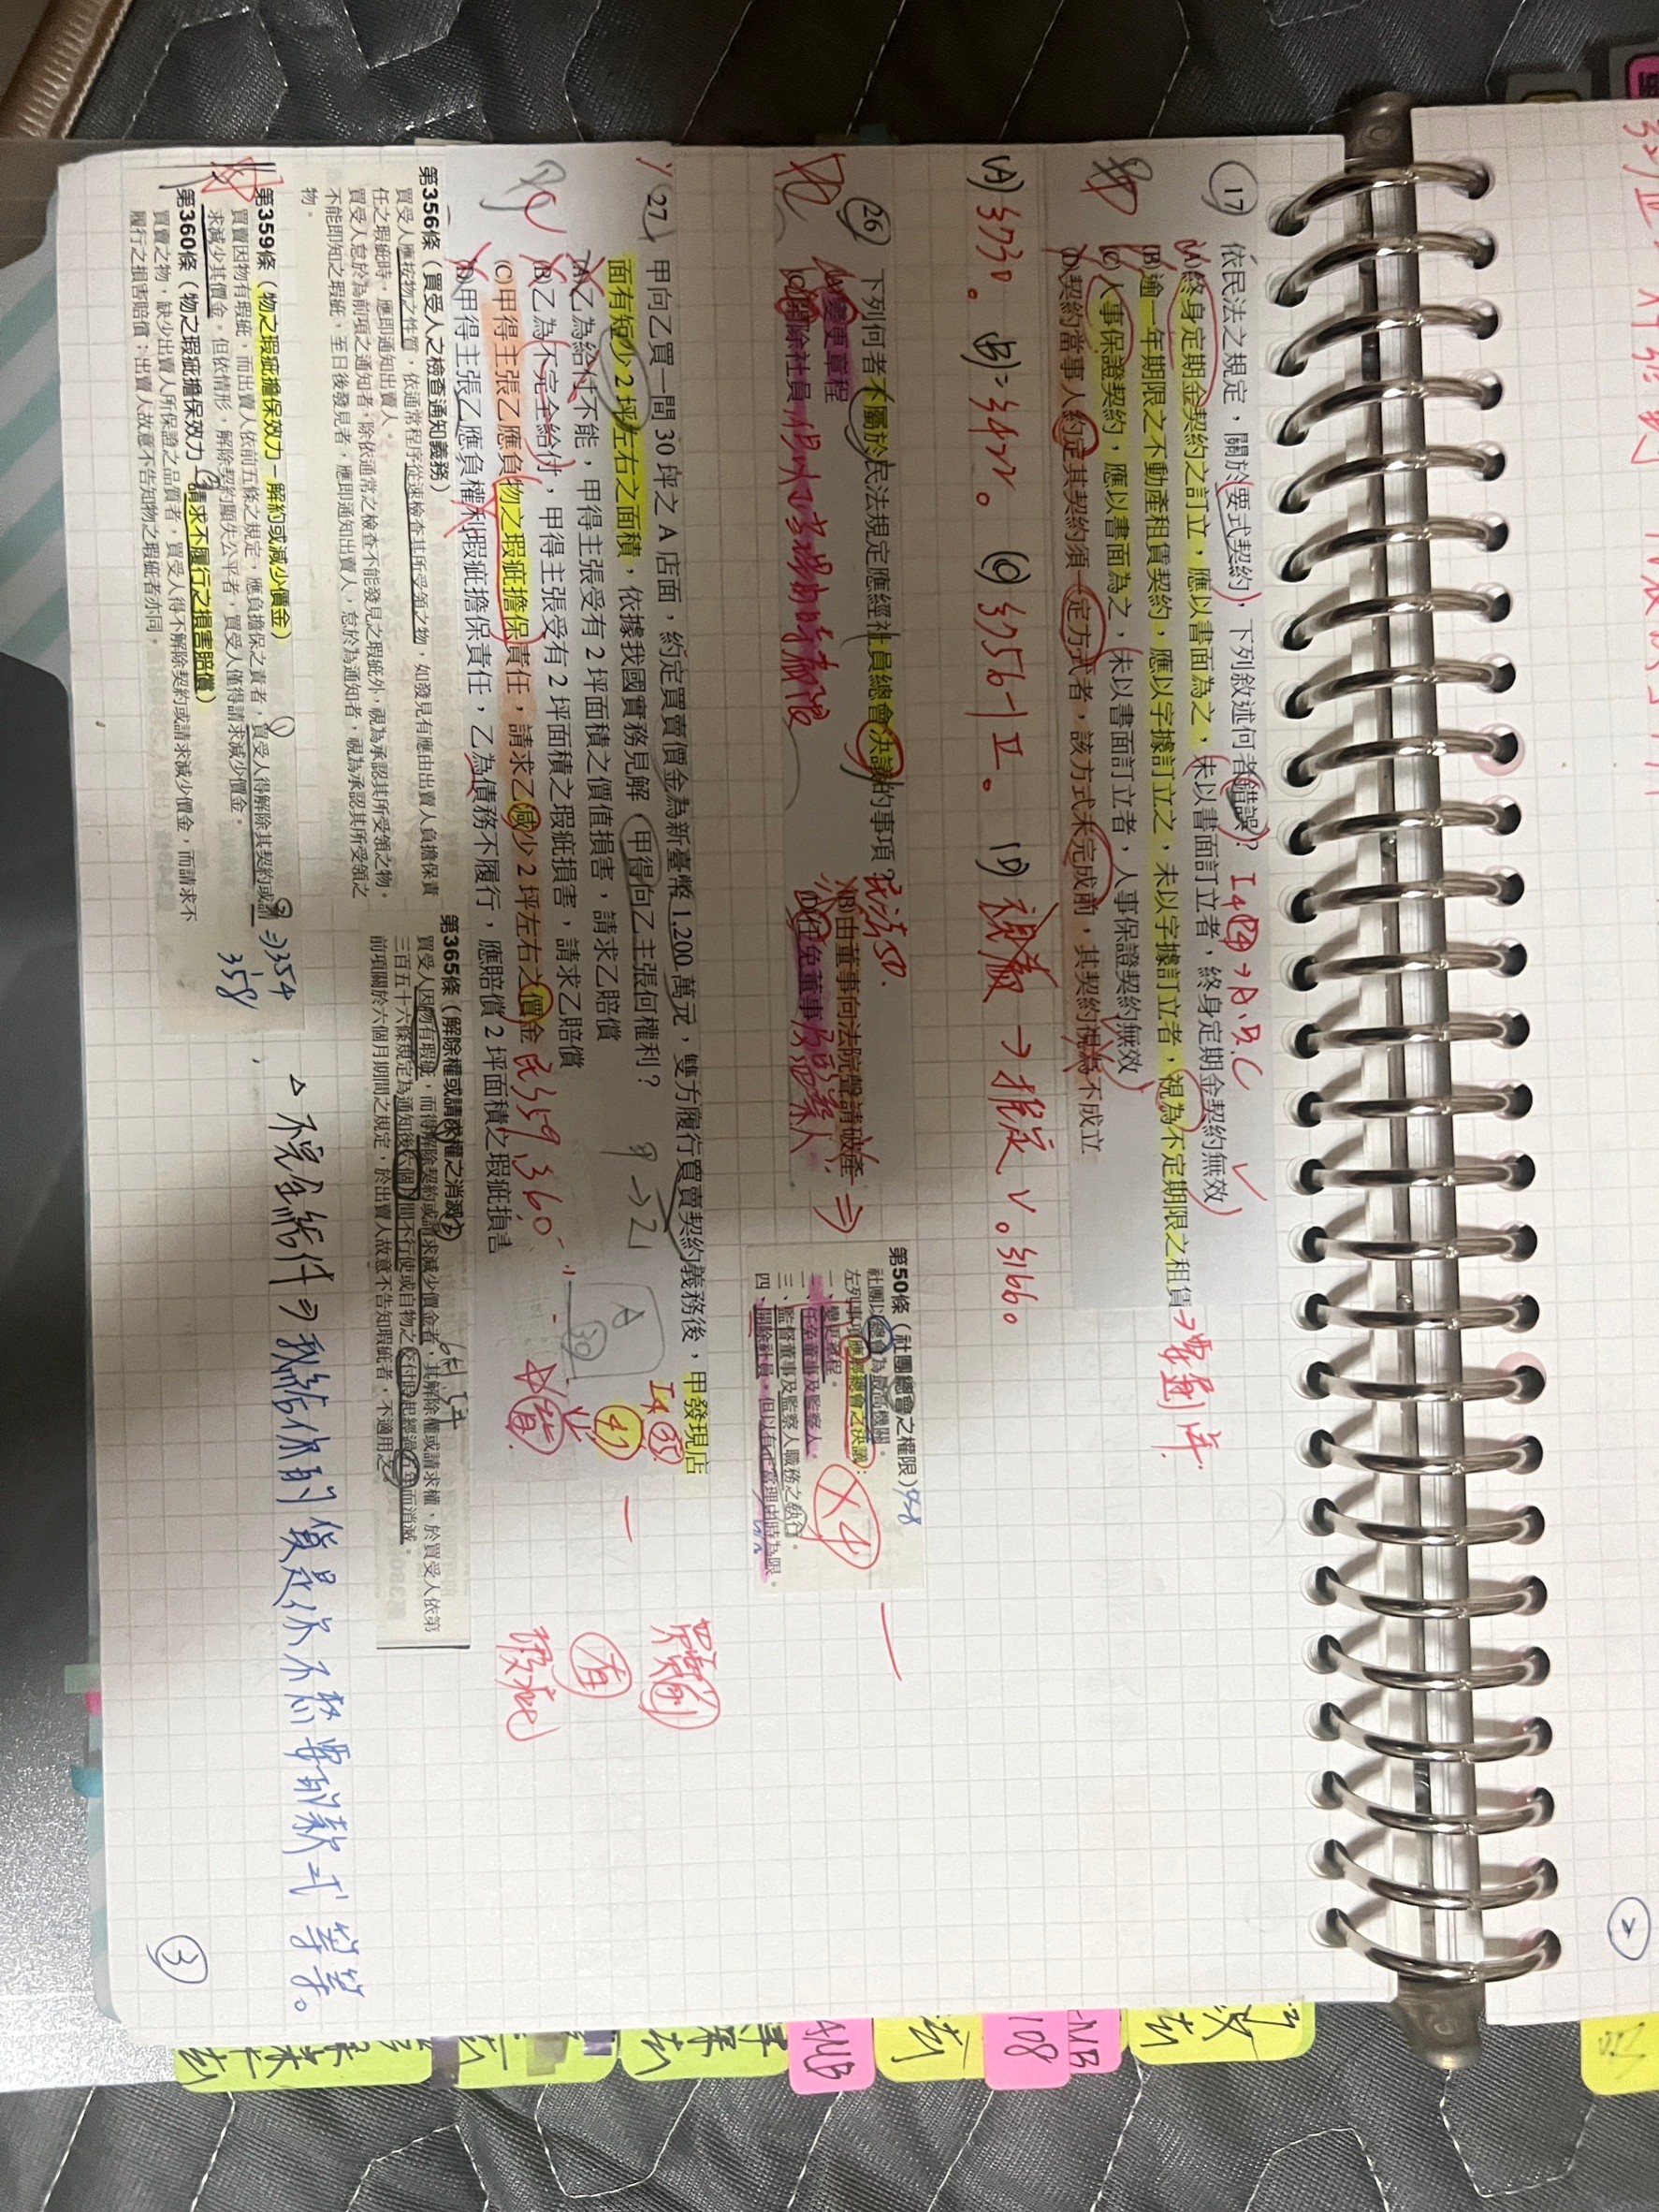 17 依民法之規定，關於要式契約，下列敘述何者錯誤？
(A)終身定期金契約之訂立，應以書面為之，未以書面訂立者，終身定期金契約無效
(B)逾一年期限之不動產租賃契約，應以字據訂立之，未以字據訂立者，視為不定期限之租賃
(C)人事保證契約，應以書面為之，未以書面訂立者，人事保證契約無效
(D)契約當事人約定其契約須一定方式者，該方式未完成前，其契約視為不成立
(A) 民730。 (B)=民422。 (C) 民756-1 II。 (D) 視為 → 推定 ✓。民166。
26 下列何者不屬於民法規定應經社員總會決議的事項？
民法50.
(A)變更章程
(B)由董事向法院聲請破產
(C)開除社員
(D)任免董事
第50條（社團總會之權限）
社團以總會為最高機關。
左列事項應經總會之決議：
一、變更章程。
二、任免董事及監察人。
三、監督董事及監察人職務之執行。
四、開除社員。但以有正當理由時為限。
X4
27 甲向乙買一間 30 坪之 A 店面，約定買賣價金為新臺幣 1,200 萬元，雙方履行買賣契約義務後，甲發現店
面有短少 2 坪左右之面積，依據我國實務見解，甲得向乙主張何權利？
(A)乙為給付不能，甲得主張受有 2 坪面積之價值損害，請求乙賠償
(B)乙為不完全給付，甲得主張受有 2 坪面積之瑕疵損害，請求乙賠償
(C)甲得主張乙應負物之瑕疵擔保責任，請求乙減少 2 坪左右之價金 民359、360
(D)甲得主張乙應負權利瑕疵擔保責任，乙為債務不履行，應賠償 2 坪面積之瑕疵損害
甲→乙
A
30
有
瑕疵
第356條（買受人之檢查通知義務）
買受人應按物之性質，依通常程序從速檢查其所受領之物，如發見有應由出賣人負擔保責
任之瑕疵時，應即通知出賣人。
買受人怠於為前項之通知者，除依通常之檢查不能發見之瑕疵外，視為承認其所受領之物。
不能即知之瑕疵，至日後發見者，應即通知出賣人，怠於為通知者，視為承認其所受領之
物。
第365條（解除權或請求權之消滅）
買受人因物有瑕疵，而得解除契約或請求減少價金者，其解除權或請求權，於買受人依第
三百五十六條規定為通知後六個月間不行使或自物之交付時起經過五年而消滅。
前項關於六個月期間之規定，於出賣人故意不告知瑕疵者，不適用之。
第359條（物之瑕疵擔保效力－解約或減少價金）
買賣因物有瑕疵，而出賣人依前五條之規定，應負擔保之責者，買受人得解除其契約或請
求減少其價金。但依情形，解除契約顯失公平者，買受人僅得請求減少價金。
⇒354
358
第360條（物之瑕疵擔保效力－請求不履行之損害賠償）
買賣之物，缺少出賣人所保證之品質者，買受人得不解除契約或請求減少價金，而請求不
履行之損害賠償；出賣人故意不告知物之瑕疵者亦同。
△ 不完全給付⇒我給你的貨是你不想要的款式等等。
3